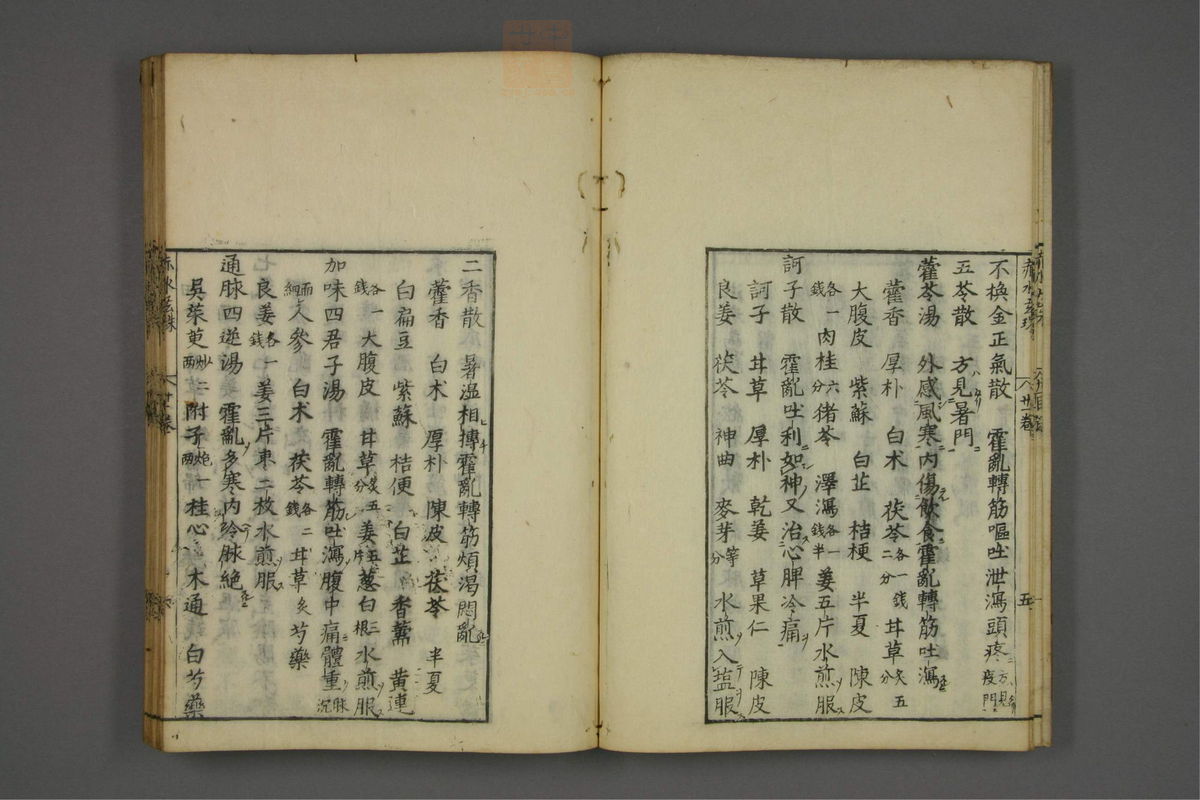 不換金正氣散　霍亂轉筋嘔吐泄瀉頭疼方見疫門
五苓散　方見暑門
藿苓湯　外感風寒內傷飲食霍亂轉筋吐瀉
藿香　厚朴　白朮　茯苓各一錢二分　甘草炙五分
大腹皮　紫蘇　白芷　桔梗　半夏　陳皮
各一錢　肉桂六分　猪苓　澤瀉各一錢半　姜五片水煎服
訶子散　霍亂吐利如神又治心脾冷痛
訶子　甘草　厚朴　乾姜　草果仁　陳皮
良姜　茯苓　神曲　麥芽等分　水煎入塩服
五
二香散　暑温相搏霍亂轉筋煩渴悶亂
藿香　白朮　厚朴　陳皮　茯苓　半夏
白扁豆　紫蘇　桔便　白芷　香薷　黃連
各一錢　大腹皮　甘草炙五分　姜五片　葱白三根　水煎服
加味四君子湯　霍亂轉筋吐瀉腹中痛體重脉沉
而細　人參　白朮　茯苓各二錢　甘草炙　芍藥
良姜各一錢　姜三片棗二枚水煎服
通脉四逆湯　霍亂多寒內冷脉絶
吳茱萸炒二兩　附子炮一兩　桂心　木通　白芍藥
赤水玄珠